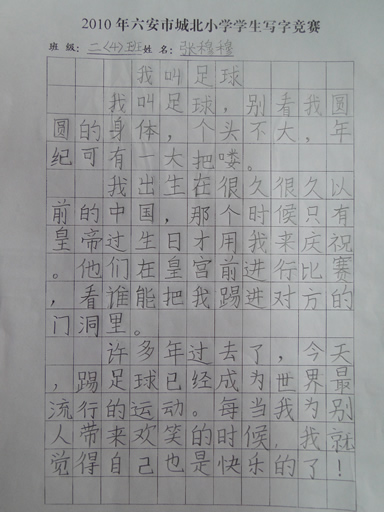 2010年六安市城北小学学生写字竞赛
班级:二〈4〉班姓名:张穆穆
我叫足球
我叫足球，别看我圆
圆的身体，个头不大，年
纪可有一大把喽。
我出生在很久很久以
前的中国，那个时候只有
皇帝过生日才用我来庆祝
。他们在皇宫前进行比赛
，看谁能把我踢进对方的
门洞里。
许多年过去了，今天
，踢足球已经成为世界最
流行的运动。每当我为别
人带来欢笑的时候，我就
觉得自己也是快乐的了！